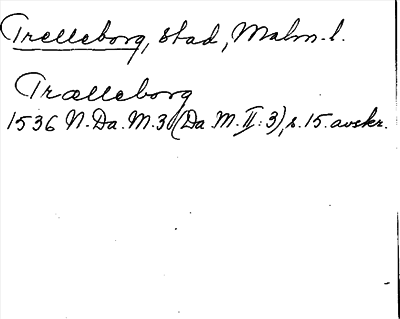 Trelleborg, stad, Malm. l.
Trælleborg
1536 N. Da. M. 3 (Da. M. II: 3), s. 15. avskr.